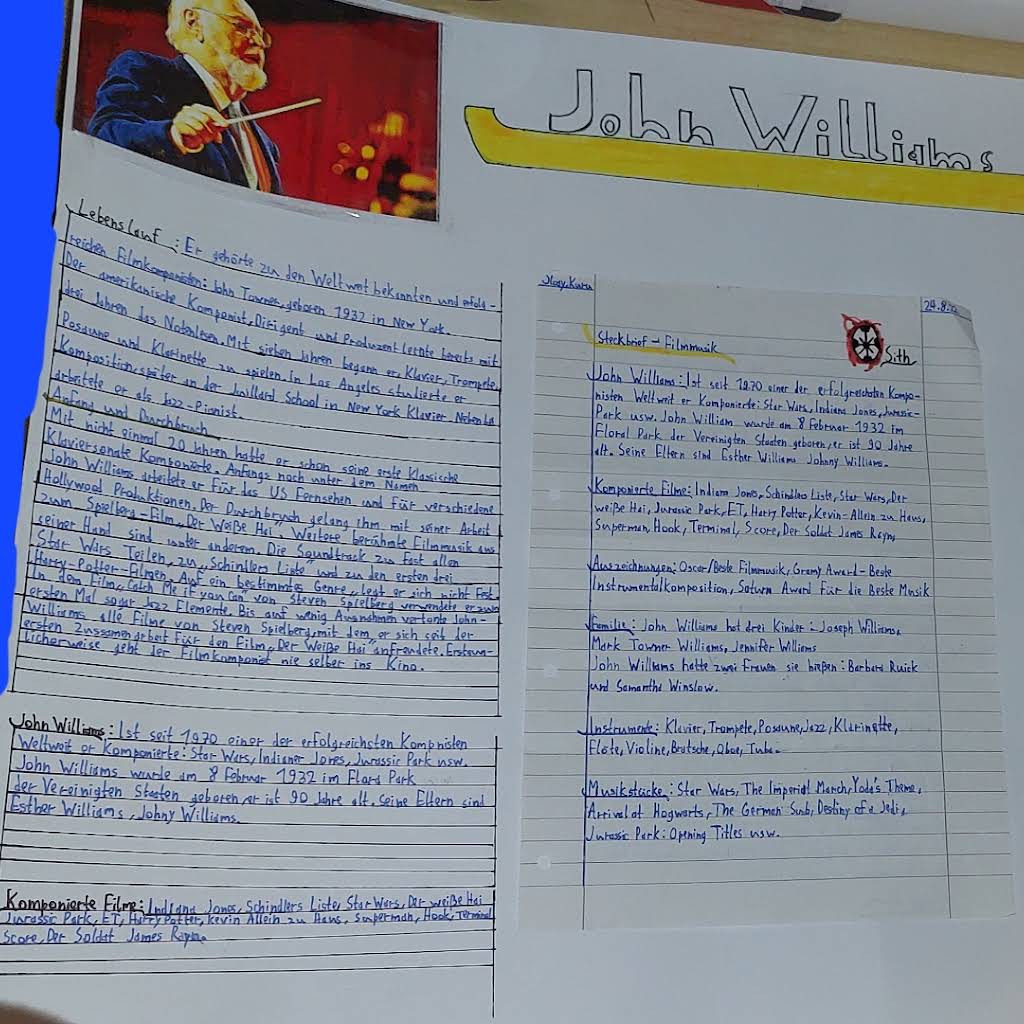 John Williams
Lebenslauf : Er gehörte zu den Weltweit bekannten und erfolg-
reichen Filmkomponisten: John Towner, geboren 1932 in New York.
Der amerikanische Komponist, Dirigent und Produzent lernte bereits mit
drei Jahren das Notenlesen. Mit sieben Jahren begann er, Klavier, Trompete,
Posaune und Klarinette zu spielen. In Los Angeles studierte er
Komposition, später an der Juillard School in New York Klavier. Nebenbei
arbeitete er als Jazz-Pianist.
Anfang und Durchbruch
Mit nicht einmal 20 Jahren hatte er schon seine erste Klassische
Klaviersonate Komponierte. Anfangs noch unter dem Namen
John Williams arbeitete er für das US Fernsehen und für verschiedene
Hollywood Produktionen. Der Durchbruch gelang ihm mit seiner Arbeit
zum Spielberg-Film „Der Weiße Hai". Weitere berühmte Filmmusik aus
seiner Hand sind unter anderem. Die Soundtrack zu fast allen
Star Wars Teilen, zu „Schindlers Liste" und zu den ersten drei
Harry-Potter-Filmen. Auf ein bestimmtes Genre, legt er sich nicht fest.
In dem Film „Catch Me if you Can" von Steven Spielberg verwendete er zum
ersten Mal sogar Jazz Elemente. Bis auf wenig Ausnahmen vertonte John-
Williams alle Filme von Steven Spielberg, mit dem er sich seit der
ersten Zussamenarbeit für den Film „Der Weiße Hai" anfreundete. Erstaun-
licherweise geht der Filmkomponist nie selber ins Kino.
John Williams : Ist seit 1970 einer der erfolgreichsten Kompnisten
Weltweit er Komponierte: Star Wars, Indianer Jones, Jurassic Park usw.
John Williams wurde am 8 Februar 1932 im Flora Park
der Vereinigten Staaten geboren, er ist 90 Jahre alt. Seine Eltern sind
Esther Williams, Johny Williams.
Komponierte Filme: Indiana Jones, Schindlers Liste, Star Wars, Der weiße Hai
Jurassic Park, ET, Harry Potter, Kevin Allein zu Haus, Superman, Hook, Terminal
Score, Der Soldat James
24.8.
Steckbrief - Filmmusik
Sith
John Williams : Ist seit 1970 einer der erfolgreichsten Kompo-
nisten Weltweit er Komponierte: Star Wars, Indiana Jones, Jurassic-
Park usw. John William wurde am 8 Februar 1932 im
Floral Park der Vereinigten Staaten geboren, er ist 90 Jahre
alt. Seine Eltern sind Esther Williams Johnny Williams.
Komponierte Filme: Indiana Jones, Schindlers Liste, Star Wars, Der
weiße Hai, Jurassic Park, ET, Harry Potter, Kevin-Allein zu Haus,
Superman, Hook, Terminal, Score, Der Soldat James Rayn,
Auszeichnungen: Oscar/Beste Filmmusik, Gramy Award-Beste
Instrumentalkomposition, Saturn Award Für die Beste Musik
Familie: John Williams hat drei Kinder: Joseph Williams,
Mark Towner Williams, Jennifer Williams
John Williams hatte zwei Frauen sie hießen: Barbara Ruick
und Samantha Winslow.
Instrumente: Klavier, Trompete, Posaune, Jazz, Klarinette,
Flöte, Violine, Bratsche, Oboe, Tuba.
Musikstücke: Star Wars, The Imperial March, Yoda's Theme,
Arrival at Hogwarts, The German Sub, Destiny of a Jedi,
Jurassic Park: Opening Titles usw.